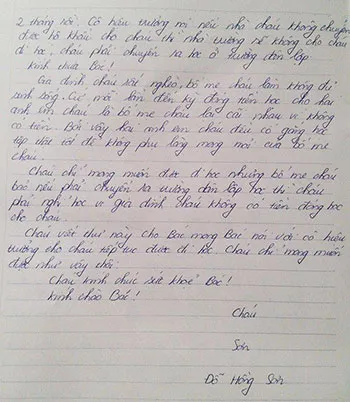 2 tháng rồi. Cô hiệu trưởng nói nếu nhà cháu không chuyển
được hộ khẩu cho cháu thì nhà trường sẽ không cho cháu
đi học, cháu phải chuyển ra học ở trường dân lập.
Kính thưa Bác!
Gia đình cháu rất nghèo, bố mẹ cháu làm không đủ
sinh sống. Cứ mỗi lần đến kỳ đóng tiền học cho hai
anh em cháu là bố mẹ cháu lại cãi nhau vì không
có tiền. Bởi vậy hai anh em cháu đều cố gắng học
tập thật tốt để không phụ lòng mong mỏi của bố mẹ
cháu.
Cháu chỉ mong muốn được đi học nhưng bố mẹ cháu
bảo nếu phải chuyển ra trường dân lập học thì cháu
phải nghỉ học vì gia đình cháu không có tiền đóng học
cho cháu.
Cháu viết thư này cho Bác mong Bác nói với cô hiệu
trưởng cho cháu tiếp tục được đi học. Cháu chỉ mong muốn
được như vậy thôi.
Cháu kính chúc sức khoẻ Bác!
Kính chào Bác!
Cháu
Sơn
Đỗ Hồng Sơn